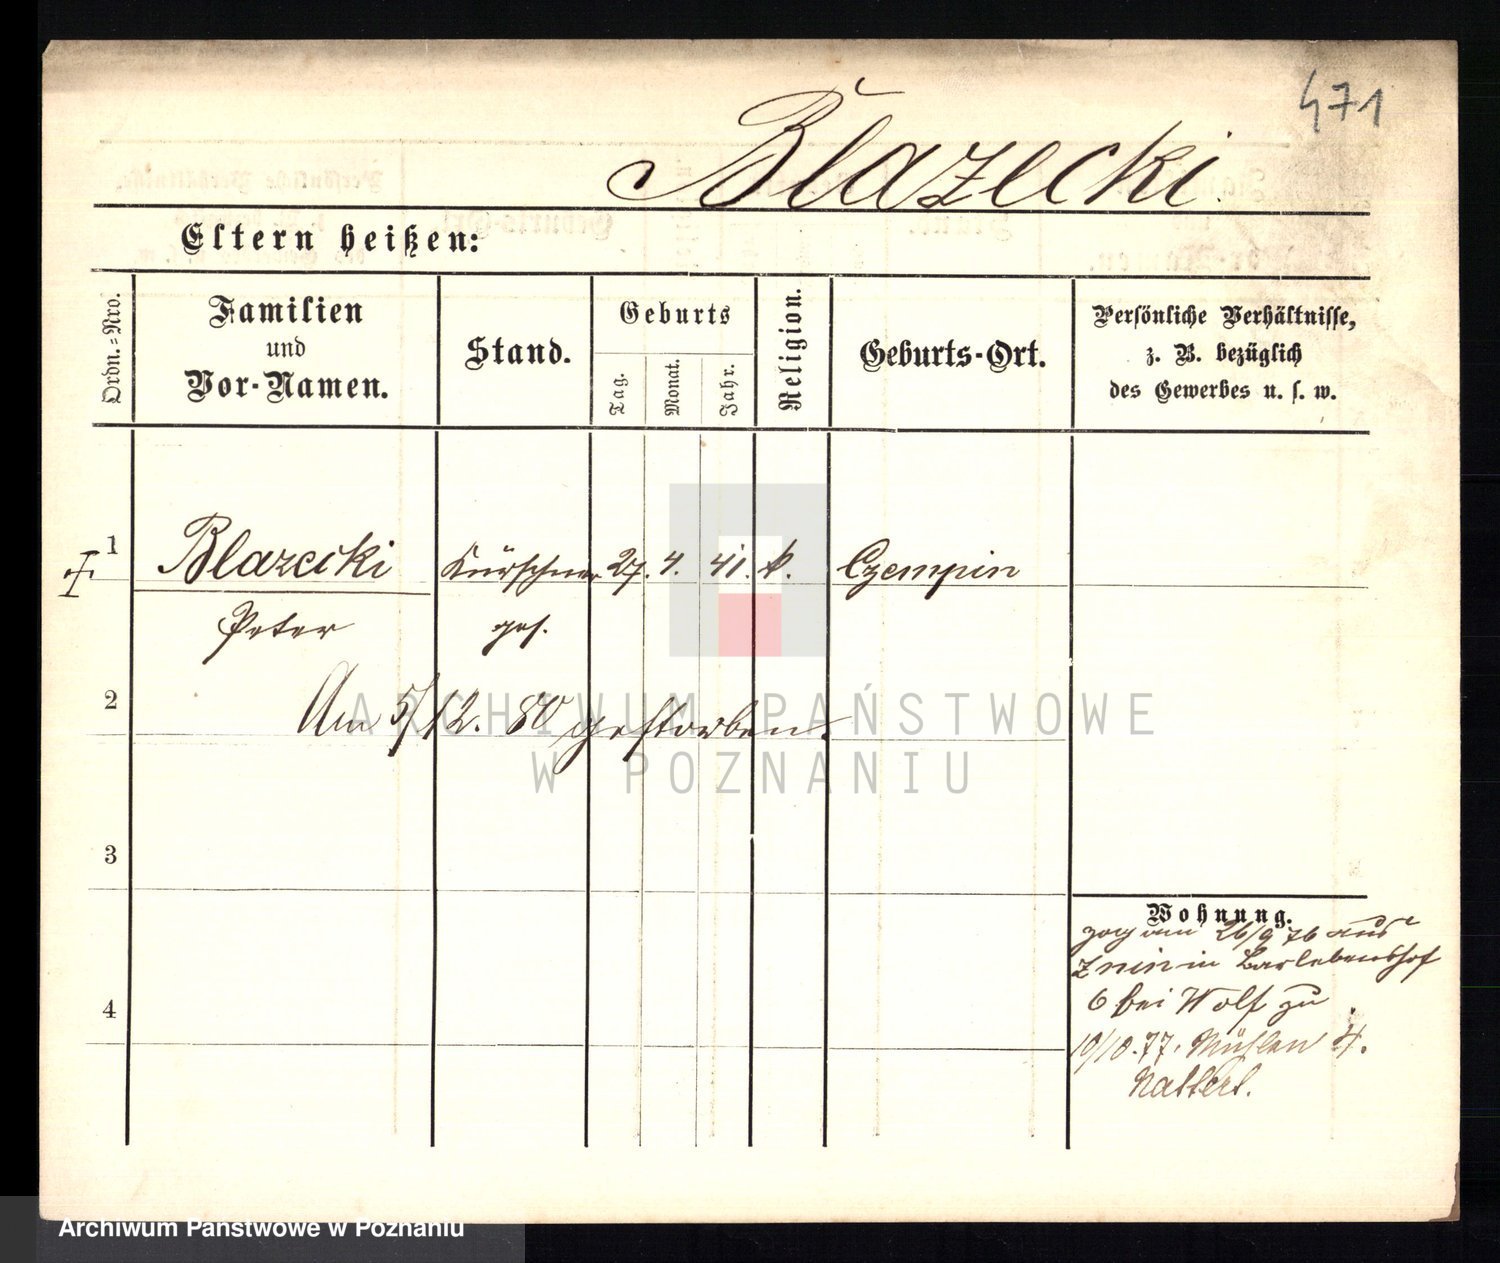 471
Blazecki.
Eltern heißen:
Ordn.=Nro.
Familien
und
Vor-Namen.
Stand.
Geburts
Tag.
Monat.
Jahr.
Religion.
Geburts-Ort.
Persönliche Verhältnisse,
z. B. bezüglich
des Gewerbes u. s. w.
1 Blazecki Kürschner 27. 4. 41. k. Czempin
Peter ges.
2 Am 5/12. 80 gestorben.
3
Wohnung.
zog am 26/9 76 aus
Znin in Barlebenshof
4 6 bei Wolf zu
19/10. 77. Mühlen 4.
ARCHIWUM PAŃSTWOWE
W POZNANIU
Archiwum Państwowe w Poznaniu